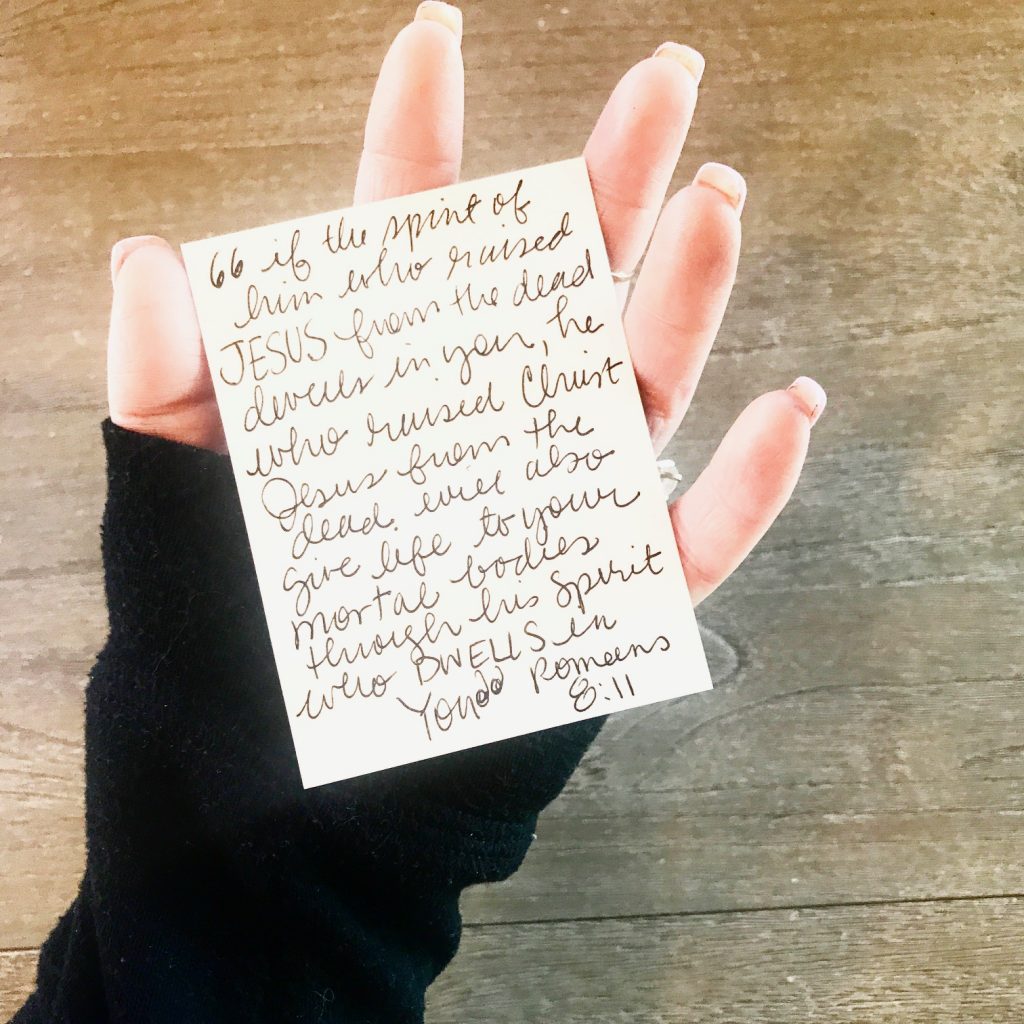 “ if the spirit of
him who raised
JESUS from the dead
dwells in you, he
who raised Christ
Jesus from the
dead. will also
give life to your
mortal bodies
through his Spirit
who DWELLS in
You” Romans
8:11